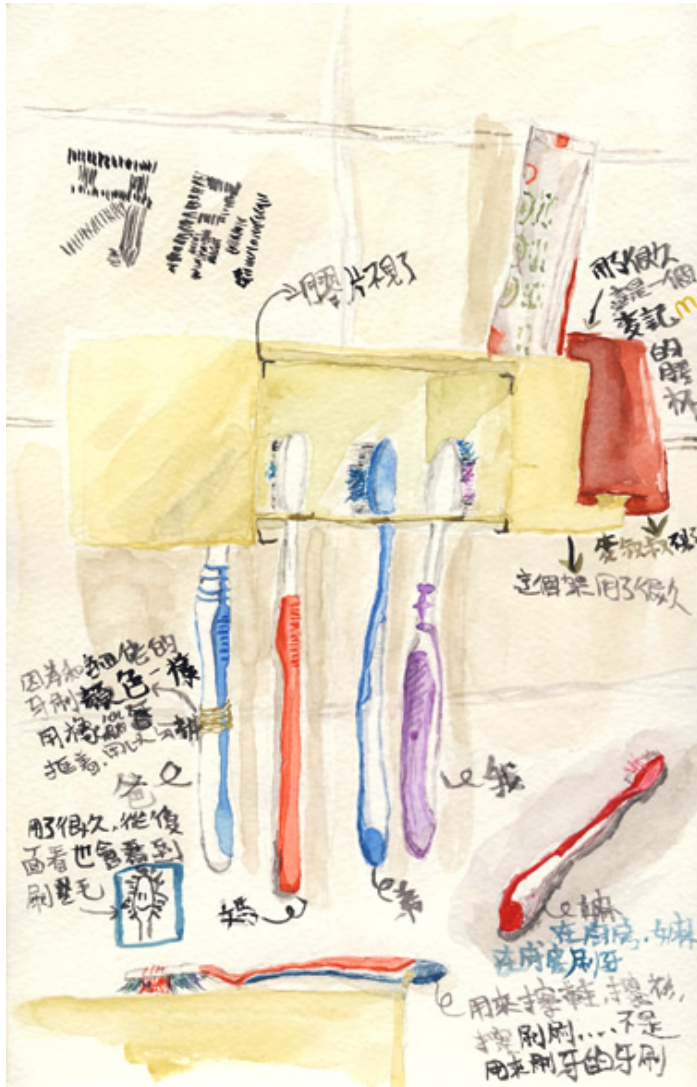 牙刷
膠片不見了
用了很久
這是一個
麥記
的
膠杯
麥叔叔
這個架用了很久
因為和細佬的
牙刷顏色一樣
用橡筋
爸
用了很久，從後
面看也會看到
刷毛
媽
弟
我
嫲
在廚房，嫲
在廚房刷牙
用來擦鞋，擦衫，
擦刷刷....不是
用來刷牙的牙刷